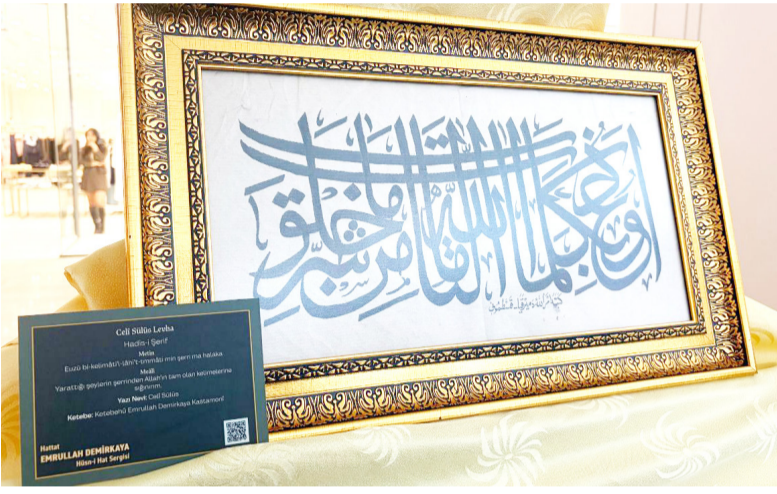 أعوذ بكلمات الله التامات من شر ما خلق
Celî Sülüs Levha
Hadîs-i Şerif
Metin
Euzü bi-kelimâti'l-lâhi't-tâmmâti min şerri ma halaka
Meâli
Yarattığı şeylerin şerrinden Allah'ın tam olan kelimelerine
sığınırım.
Yazı Nevi: Celî Sülüs
Ketebe: Ketebehû Emrullah Demirkaya Kastamonî
Hattat
EMRULLAH DEMİRKAYA
Hüsn-i Hat Sergisi